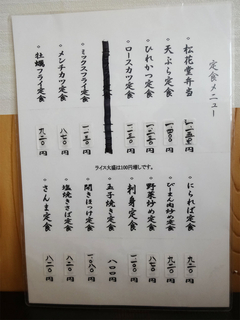 定食メニュー
松花堂弁当
天ぷら定食 一四〇〇円
ひれかつ定食
ロースカツ定食
ミックスフライ定食
メンチカツ定食 八七〇円
牡蠣フライ定食 九二〇円
ライス大盛は100円増しです。
にられば定食 九二〇円
ぴーまん肉炒め定食 九二〇円
野菜炒め定食 八七〇円
刺身定食
玉子焼き定食 八〇〇円
開きほっけ定食 一〇八〇円
塩焼きさば定食 八二〇円
さんま定食 八二〇円